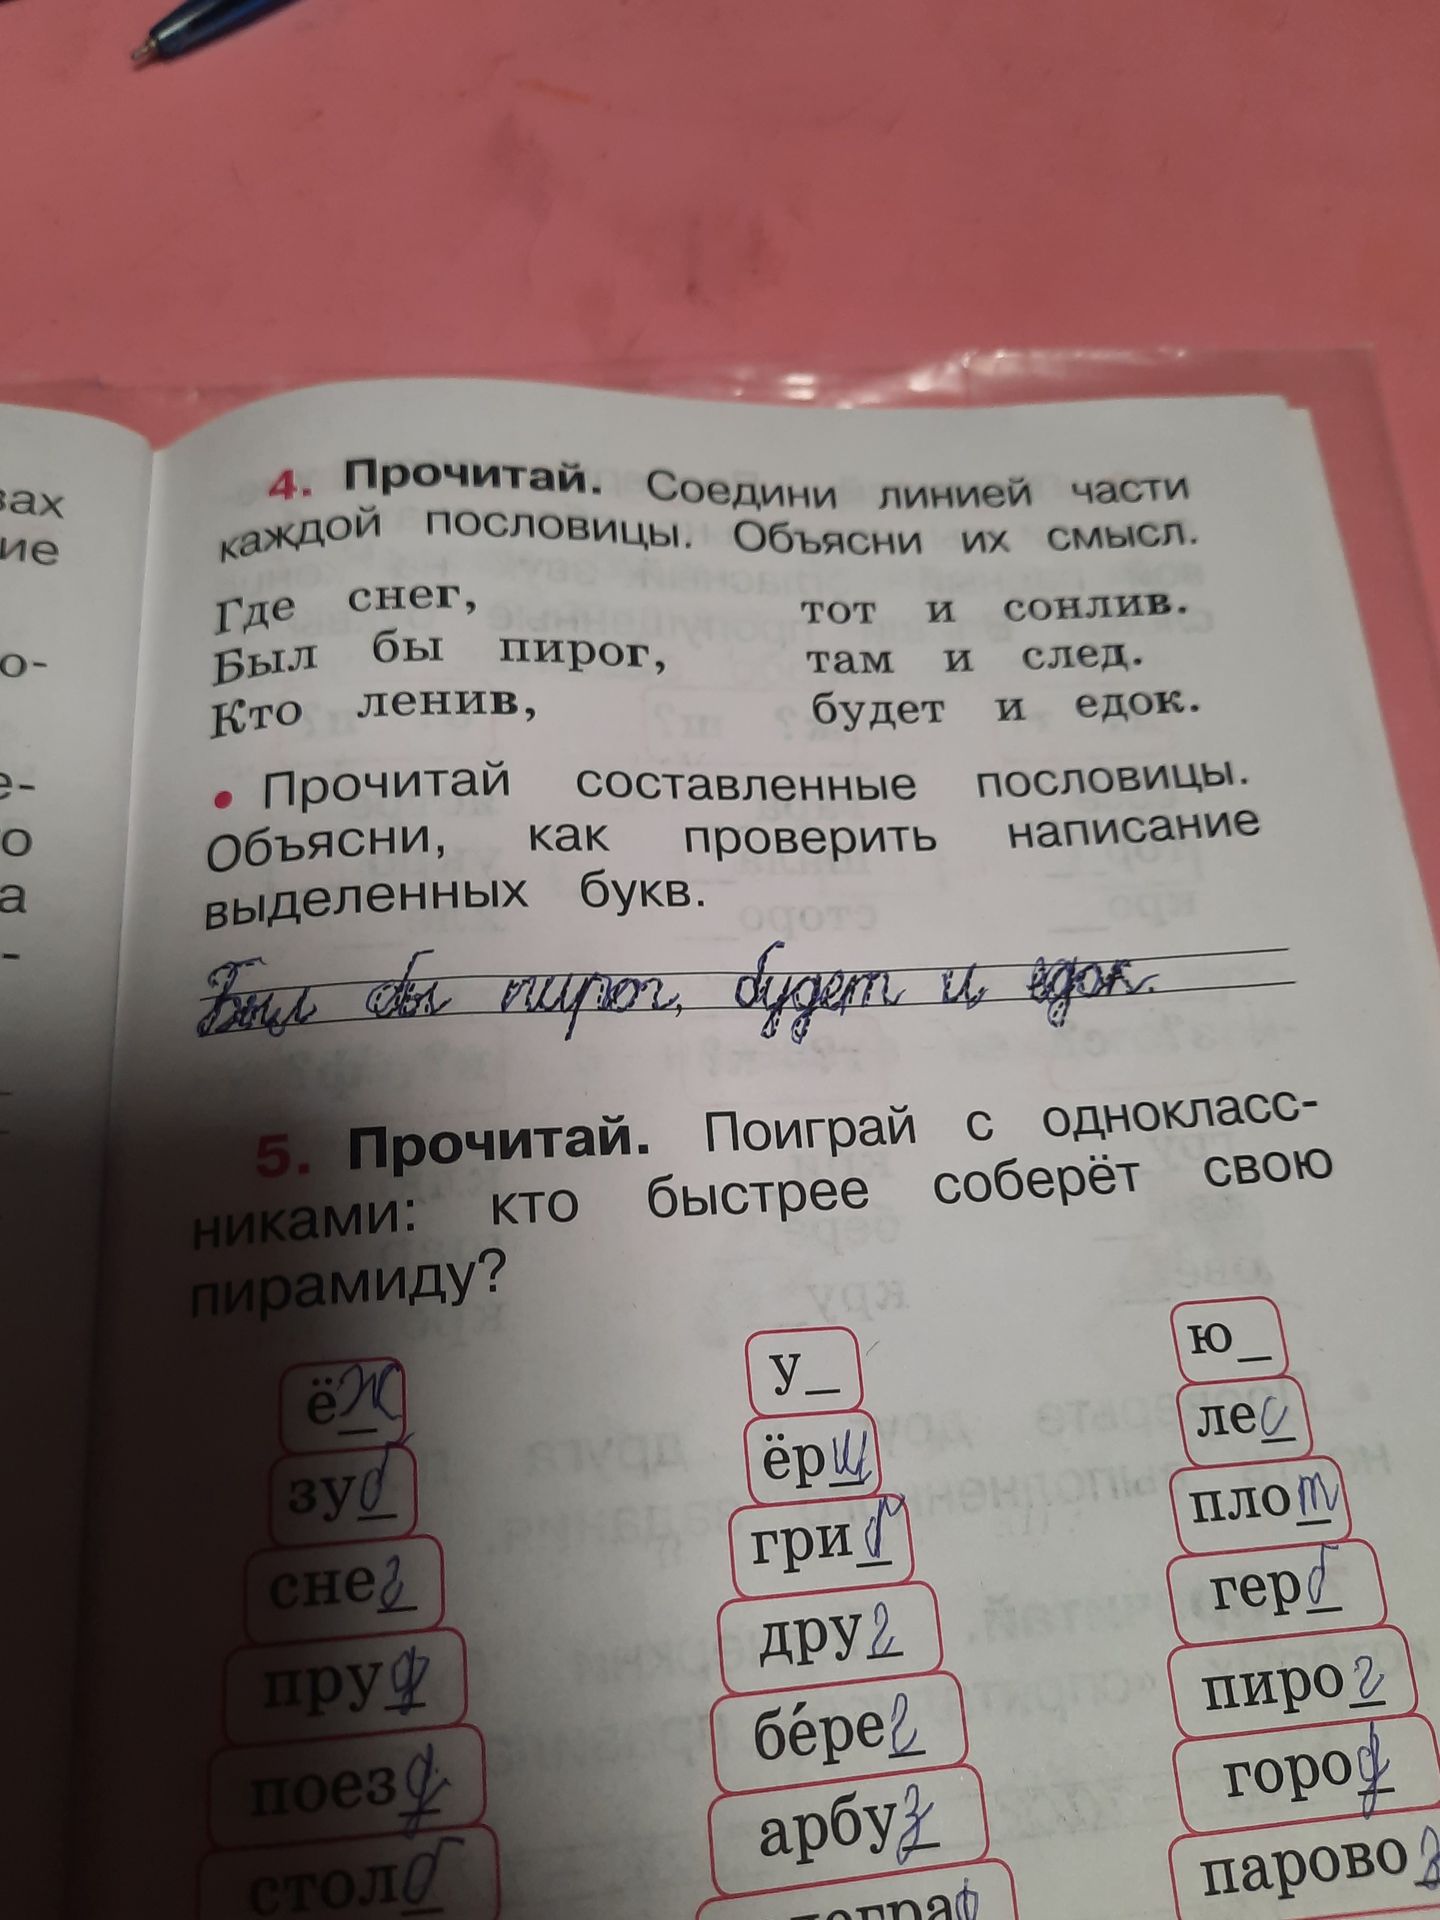 вах
ие
о-
е-
о
а
-
4. Прочитай. Соедини линией части
каждой пословицы. Объясни их смысл.
Где снег, тот и сонлив.
Был бы пирог, там и след.
Кто ленив, будет и едок.
• Прочитай составленные пословицы.
Объясни, как проверить написание
выделенных букв.
Был бы пирог, будет и едок.
5. Прочитай. Поиграй с однокласс-
никами: кто быстрее соберёт свою
пирамиду?
ёж у_ ю_
зуб ёрш лес
снег гриб плот
пруд друг герб
поезд бе́рег пирог
столб арбуз город
паровоз